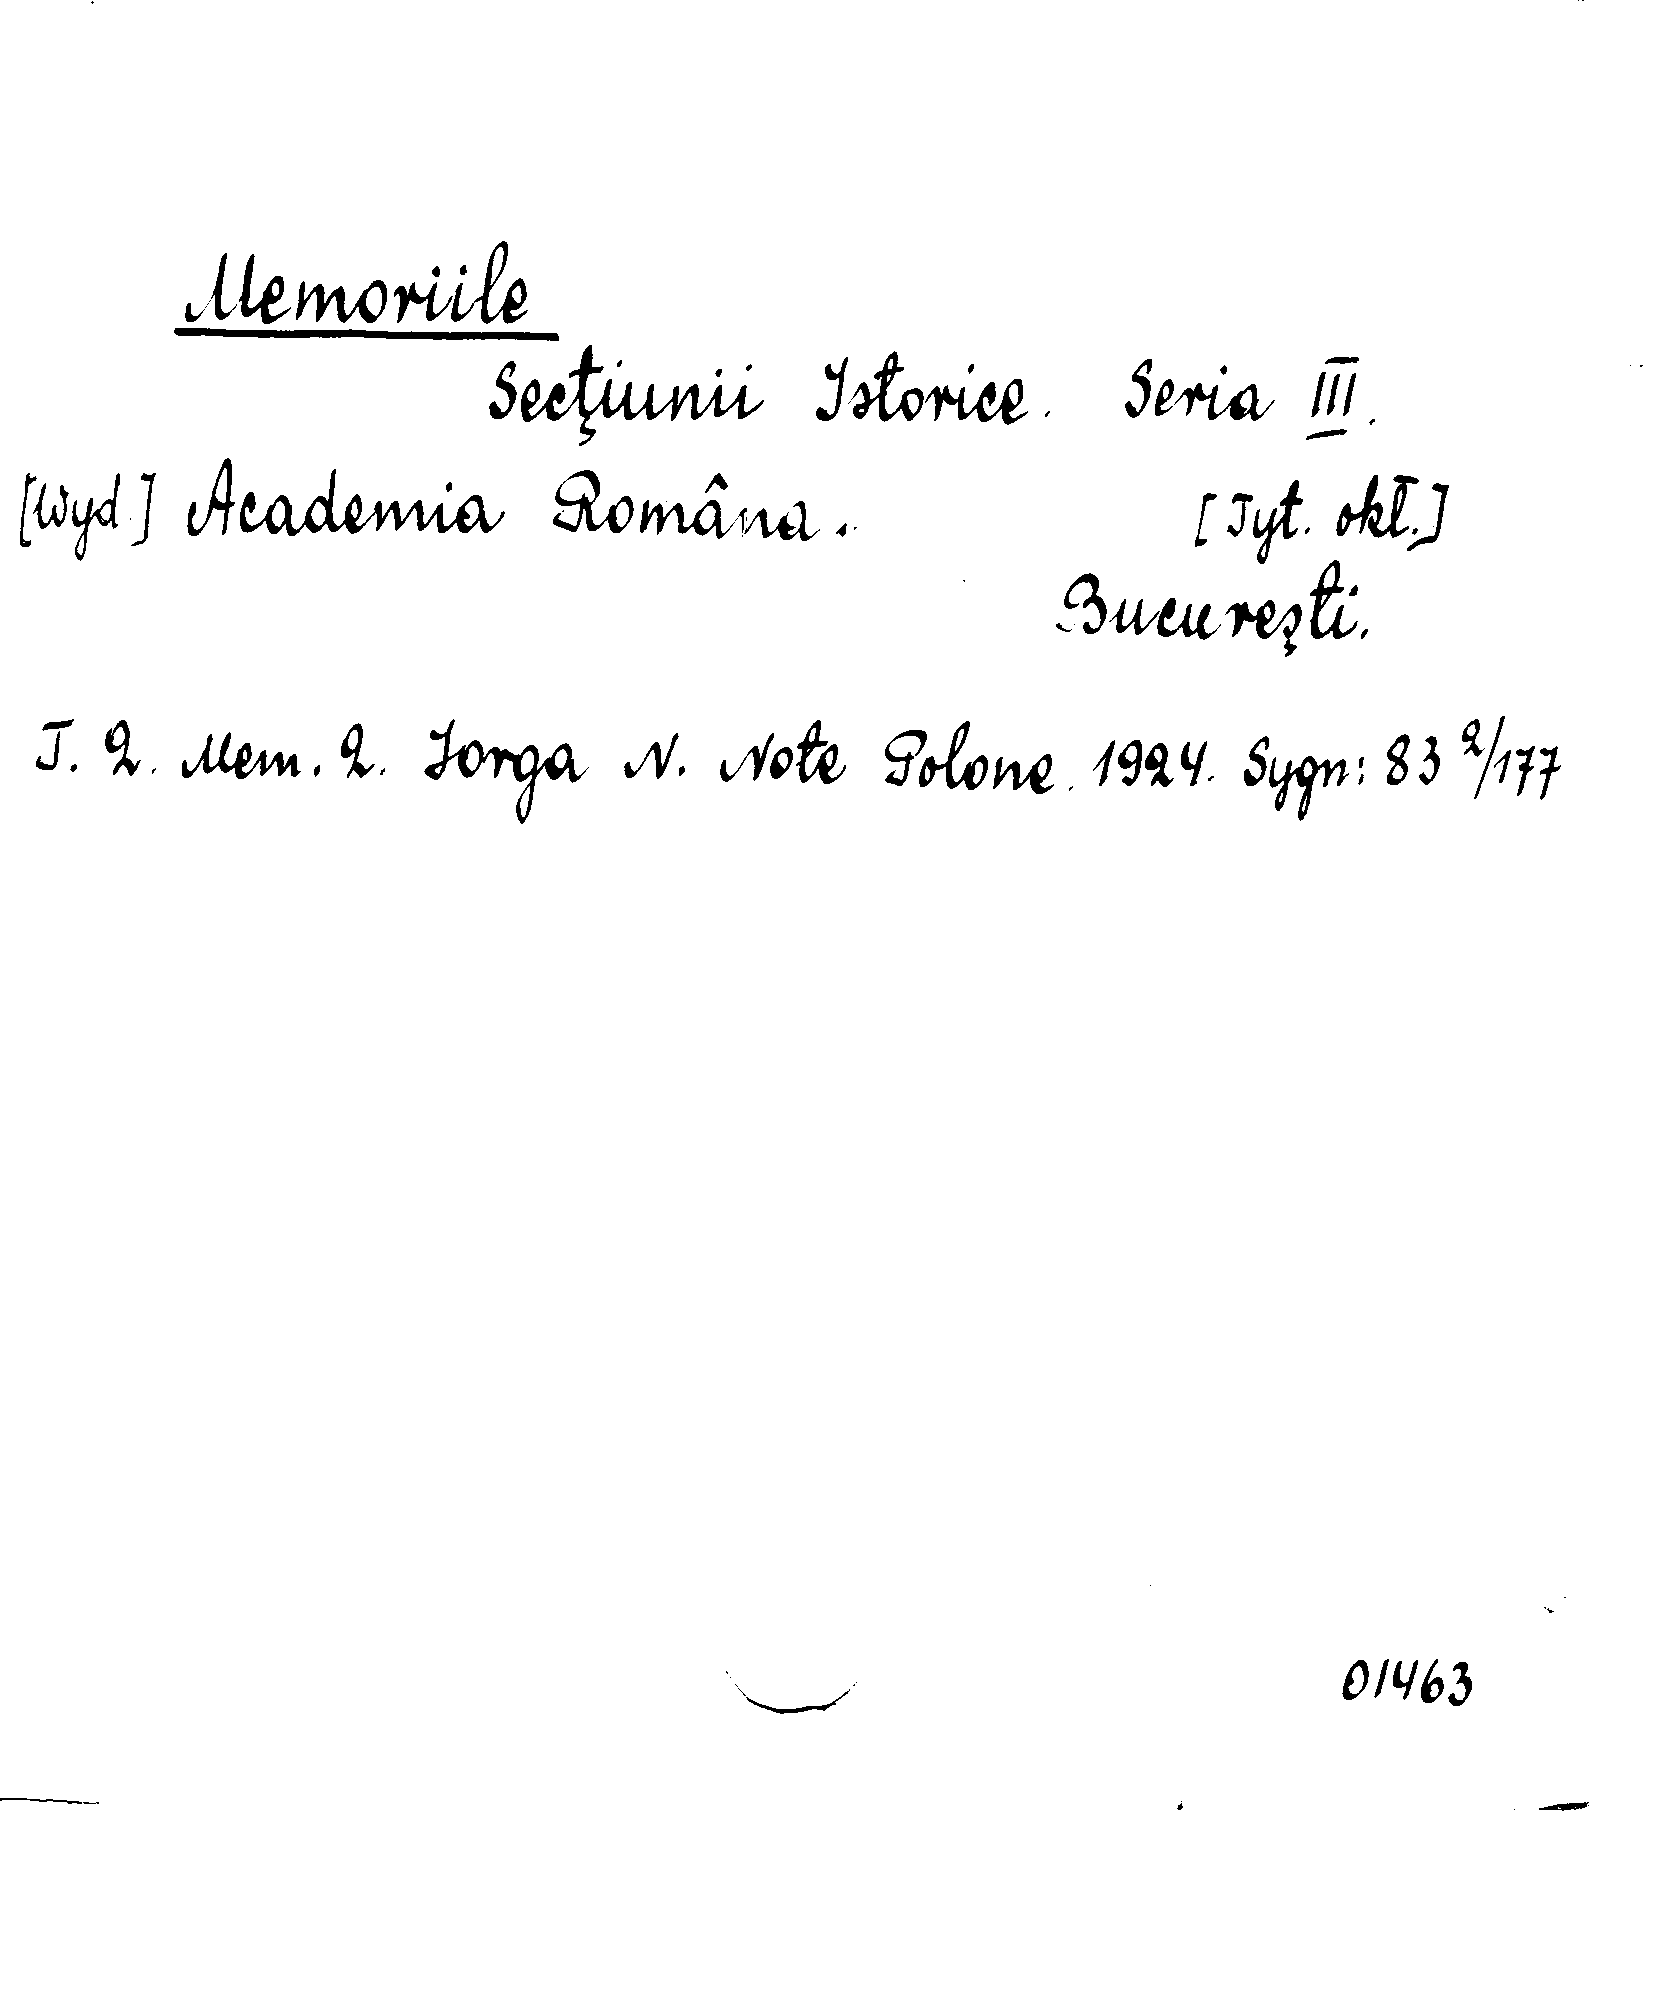 Memoriile
Secţiunii Istorice. Seria III.
[Wyd.] Academia Româna. [Tyt. okł.]
Bucureşti.
T. 2. Mem. 2. Iorga N. Note Polone. 1924. Sygn: 83 2/177
01463